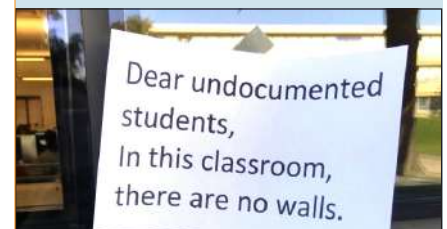 Dear undocumented
students,
In this classroom,
there are no walls.